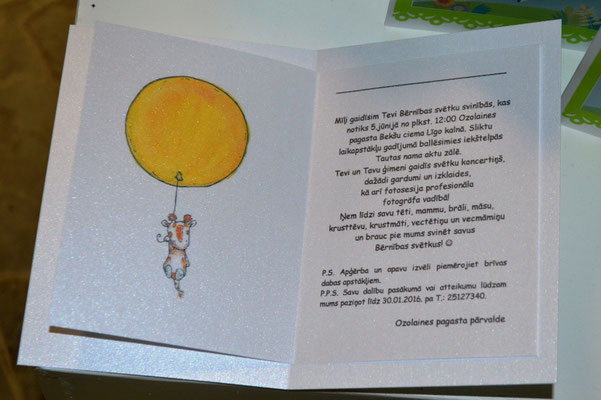 Mīļi gaidīsim Tevi Bērnības svētku svinībās, kas
notiks 5.jūnijā no plkst. 12:00 Ozolaines
pagasta Bekšu ciema Līgo kalnā. Sliktu
laikapstākļu gadījumā ballēsimies iekštelpās
Tautas nama aktu zālē.
Tevi un Tavu ģimeni gaidīs svētku koncertiņš,
dažādi gardumi un izklaides,
kā arī fotosesija profesionāla
fotogrāfa vadībā!
Ņem līdzi savu tēti, mammu, brāli, māsu,
krusttēvu, krustmāti, vectētiņu un vecmāmiņu
un brauc pie mums svinēt savus
Bērnības svētkus! ☺
P.S. Apģērba un apavu izvēli piemērojiet brīvas
dabas apstākļiem.
P.P.S. Savu dalību pasākumā vai atteikumu lūdzam
mums paziņot līdz 30.01.2016. pa T.: 25127340.
Ozolaines pagasta pārvalde